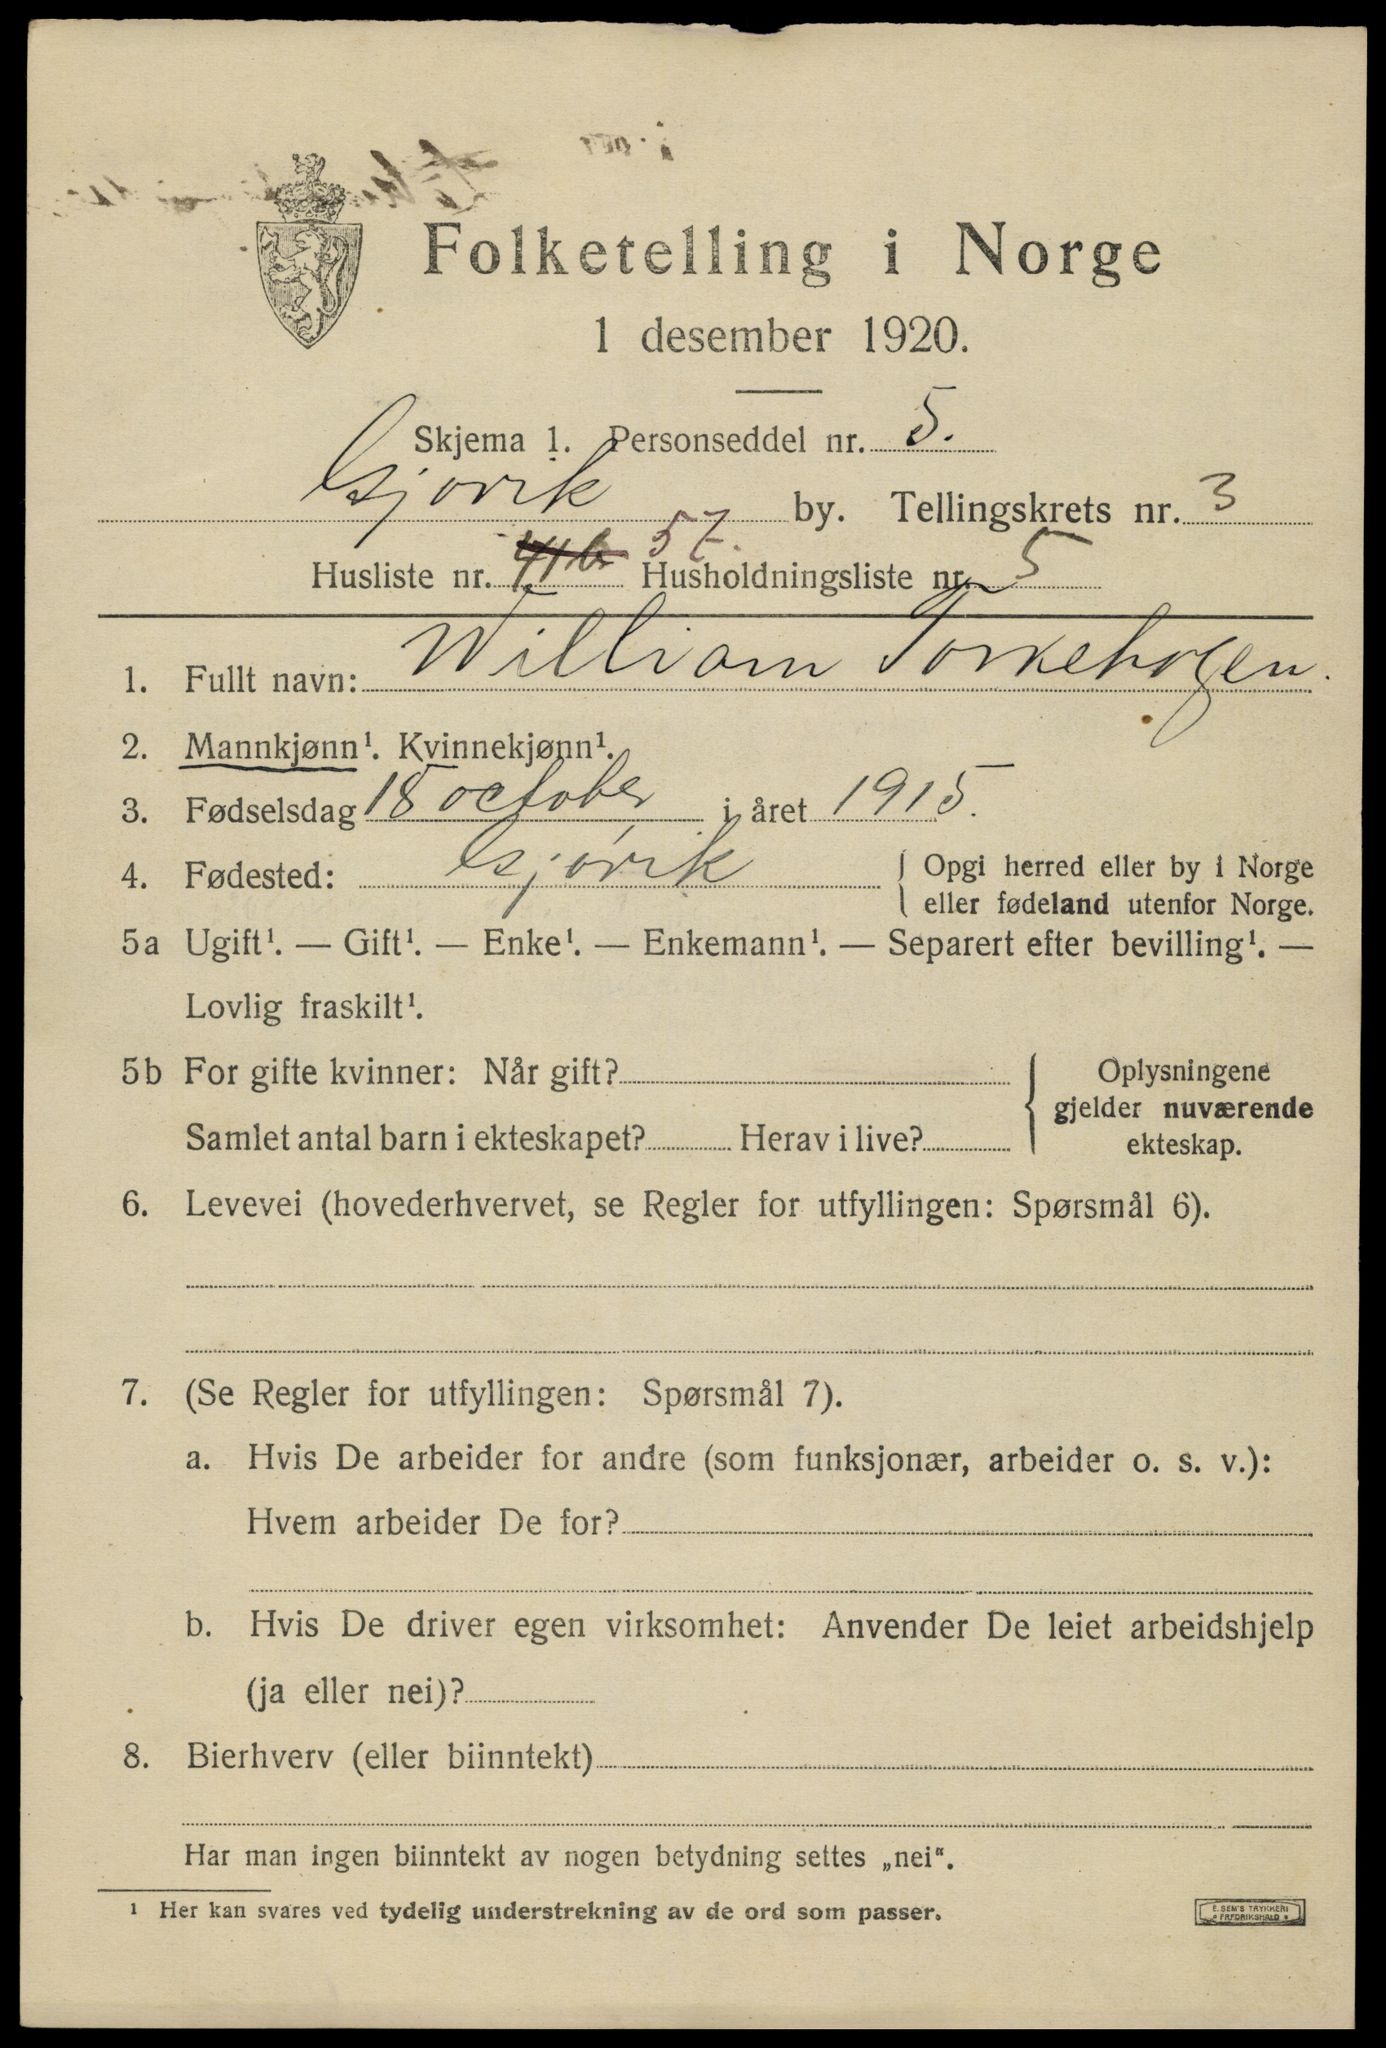 Folketelling i Norge
1 desember 1920.
Skjema 1. Personseddel nr. 5.
Gjøvik by. Tellingskrets nr. 3
Husliste nr. 57. Husholdningsliste nr. 5
1. Fullt navn: William Torkehagen.
2. Mannkjønn¹. Kvinnekjønn¹.
3. Fødselsdag 18 october i året 1915.
4. Fødested: Gjøvik { Opgi herred eller by i Norge
eller fødeland utenfor Norge.
5a Ugift¹. — Gift¹. — Enke¹. — Enkemann¹. — Separert efter bevilling¹. —
Lovlig fraskilt¹.
5b For gifte kvinner: Når gift? { Oplysningene
gjelder nuværende
Samlet antal barn i ekteskapet? Herav i live? ekteskap.
6. Levevei (hovederhvervet, se Regler for utfyllingen: Spørsmål 6).
7. (Se Regler for utfyllingen: Spørsmål 7).
a. Hvis De arbeider for andre (som funksjonær, arbeider o. s. v.):
Hvem arbeider De for?
b. Hvis De driver egen virksomhet: Anvender De leiet arbeidshjelp
(ja eller nei)?
8. Bierhverv (eller biinntekt)
Har man ingen biinntekt av nogen betydning settes „nei“.
¹ Her kan svares ved tydelig understrekning av de ord som passer.
E. SEM'S TRYKKERI
FREDRIKSHALD